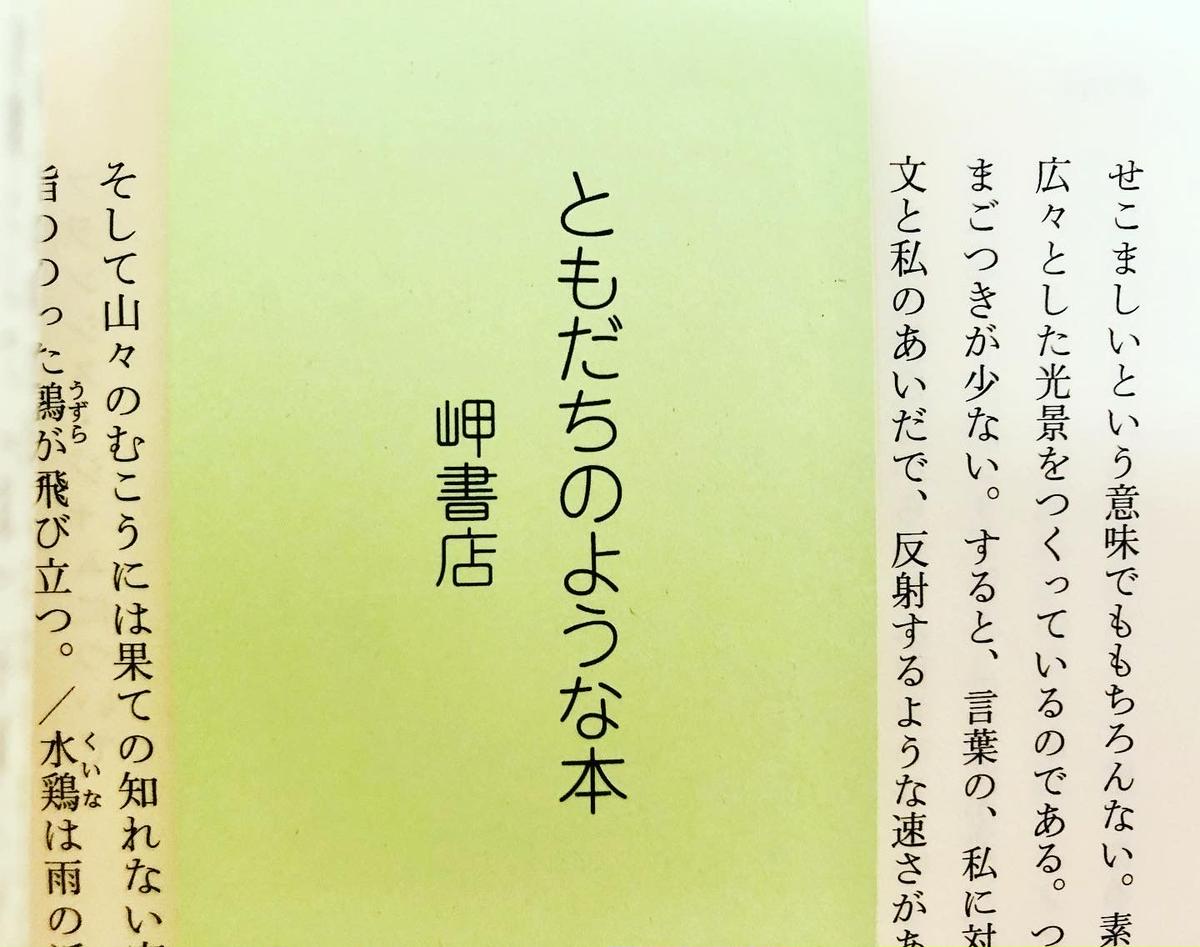 せこましいという意味でももちろんない。素
広々とした光景をつくっているのである。つ
まごつきが少ない。すると、言葉の、私に対
文と私のあいだで、反射するような速さがあ
ともだちのような本
岬書店
そして山々のむこうには果ての知れない
うずら
ののった鶉が飛び立つ。／水鶏は雨の
くいな